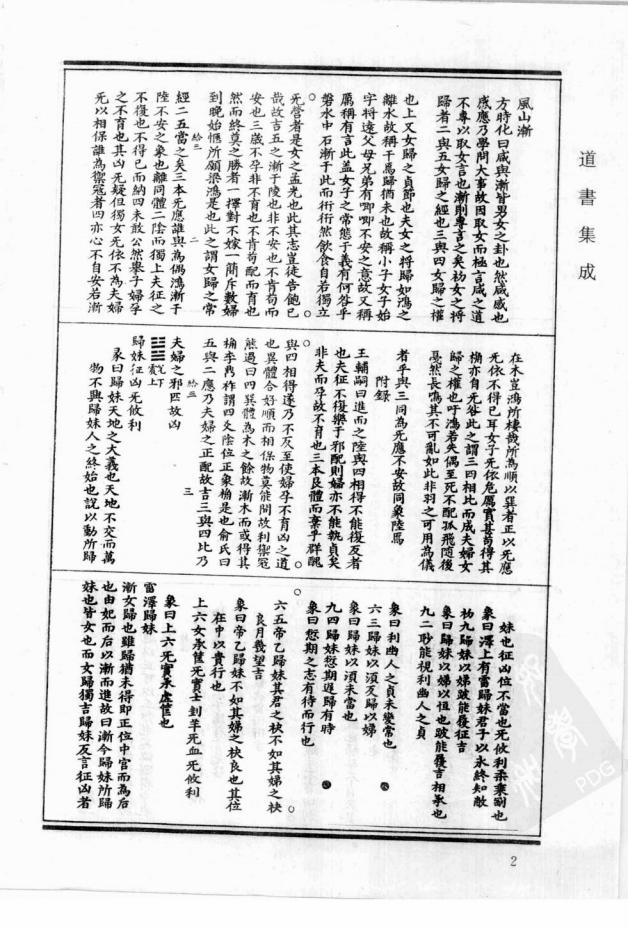 道書集成
風山漸
方時化曰咸與漸皆男女之卦也然咸感也
感應乃學問大事故因取女而極言咸之道
不專以取女言也漸則專言之矣衲女之將
歸者二與五女歸之經也三與四女歸之權
也上又女歸之貞節也夫女之將歸如鴻之
離水故稱干焉歸猶未也故稱小子女子始
字将遠父母兄弟有唧唧不安之意故又稱
厲稱有言此盖女子之常態于義有何咎乎
磐水中石漸于此而衎衎然飲食自若獨立
旡營者是女之孟光也此其志豈徒告飽已
哉故吉五之漸于陵也非不安也不肯苟而
安也三歲不孕非不育也不肯苟配而育也
然而終莫之勝者一擇對不嫁一簡斥數婦
到晚始愜所願梁鴻是也此之謂女歸之常
經二五當之矣三本旡應誰與為偶鴻漸于
陸不安之象也離同體二陰而獨上夫征之
不復也不得已而納四未敢公然舉子婦孕
之不育也其凶旡疑但獨女旡依不為夫婦
旡以相保誰為禦寇者四亦心不自安若漸
在木豈鴻所棲哉所為順以巽者正以旡應
旡依不得已耳女子旡依危厲實甚苟得其
桷亦自旡咎此之謂三四相比而成夫婦女
歸之權也吁鴻若失偶至死不配孤飛随後
戞然長鳴其不可亂如此非羽之可用為儀
者乎與三同為旡應不安故同象陸焉
附錄
王輔嗣曰進而之陸與四相得不能復反者
也夫征不復樂于邪配則婦亦不能執貞矣
非夫而孕故不育也三本艮體而棄乎群醜
與四相得遂乃不反至使婦孕不育凶之道
也異體合好順而相保物莫能間故利禦寇
熊過曰四異體為木之餘故漸木而或得其
桷李鼎祚謂四爻陰位正象桷是也俞氏曰
五與二應乃夫婦之正配故吉三與四比乃
夫婦之邪匹故凶
歸妹征凶旡攸利
彖曰歸妹天地之大義也天地不交而萬
物不興歸妹人之終始也說以動所歸
妹也征凶位不當也旡攸利柔乘剛也
象曰澤上有雷歸妹君子以永終知敝
初九歸妹以娣跛能履征吉
象曰歸妹以娣以恒也跛能履吉相承也
九二眇能視利幽人之貞
象曰利幽人之貞未變常也
六三歸妹以須反歸以娣
象曰歸妹以須未當也
九四歸妹愆期遲歸有時
象曰愆期之志有待而行也
六五帝乙歸妹其君之袂不如其娣之袂
良月幾望吉
象曰帝乙歸妹不如其娣之袂良也其位
在中以貴行也
上六女承筐旡實士刲羊旡血旡攸利
象曰上六旡實承虚筐也
雷澤歸妹
漸女歸也雖歸猶未得即正位中宫而為后
也由妃而后以漸而進故曰漸今歸妹所歸
妹也皆女也而女歸獨吉歸妹反言征凶者
2
PDG